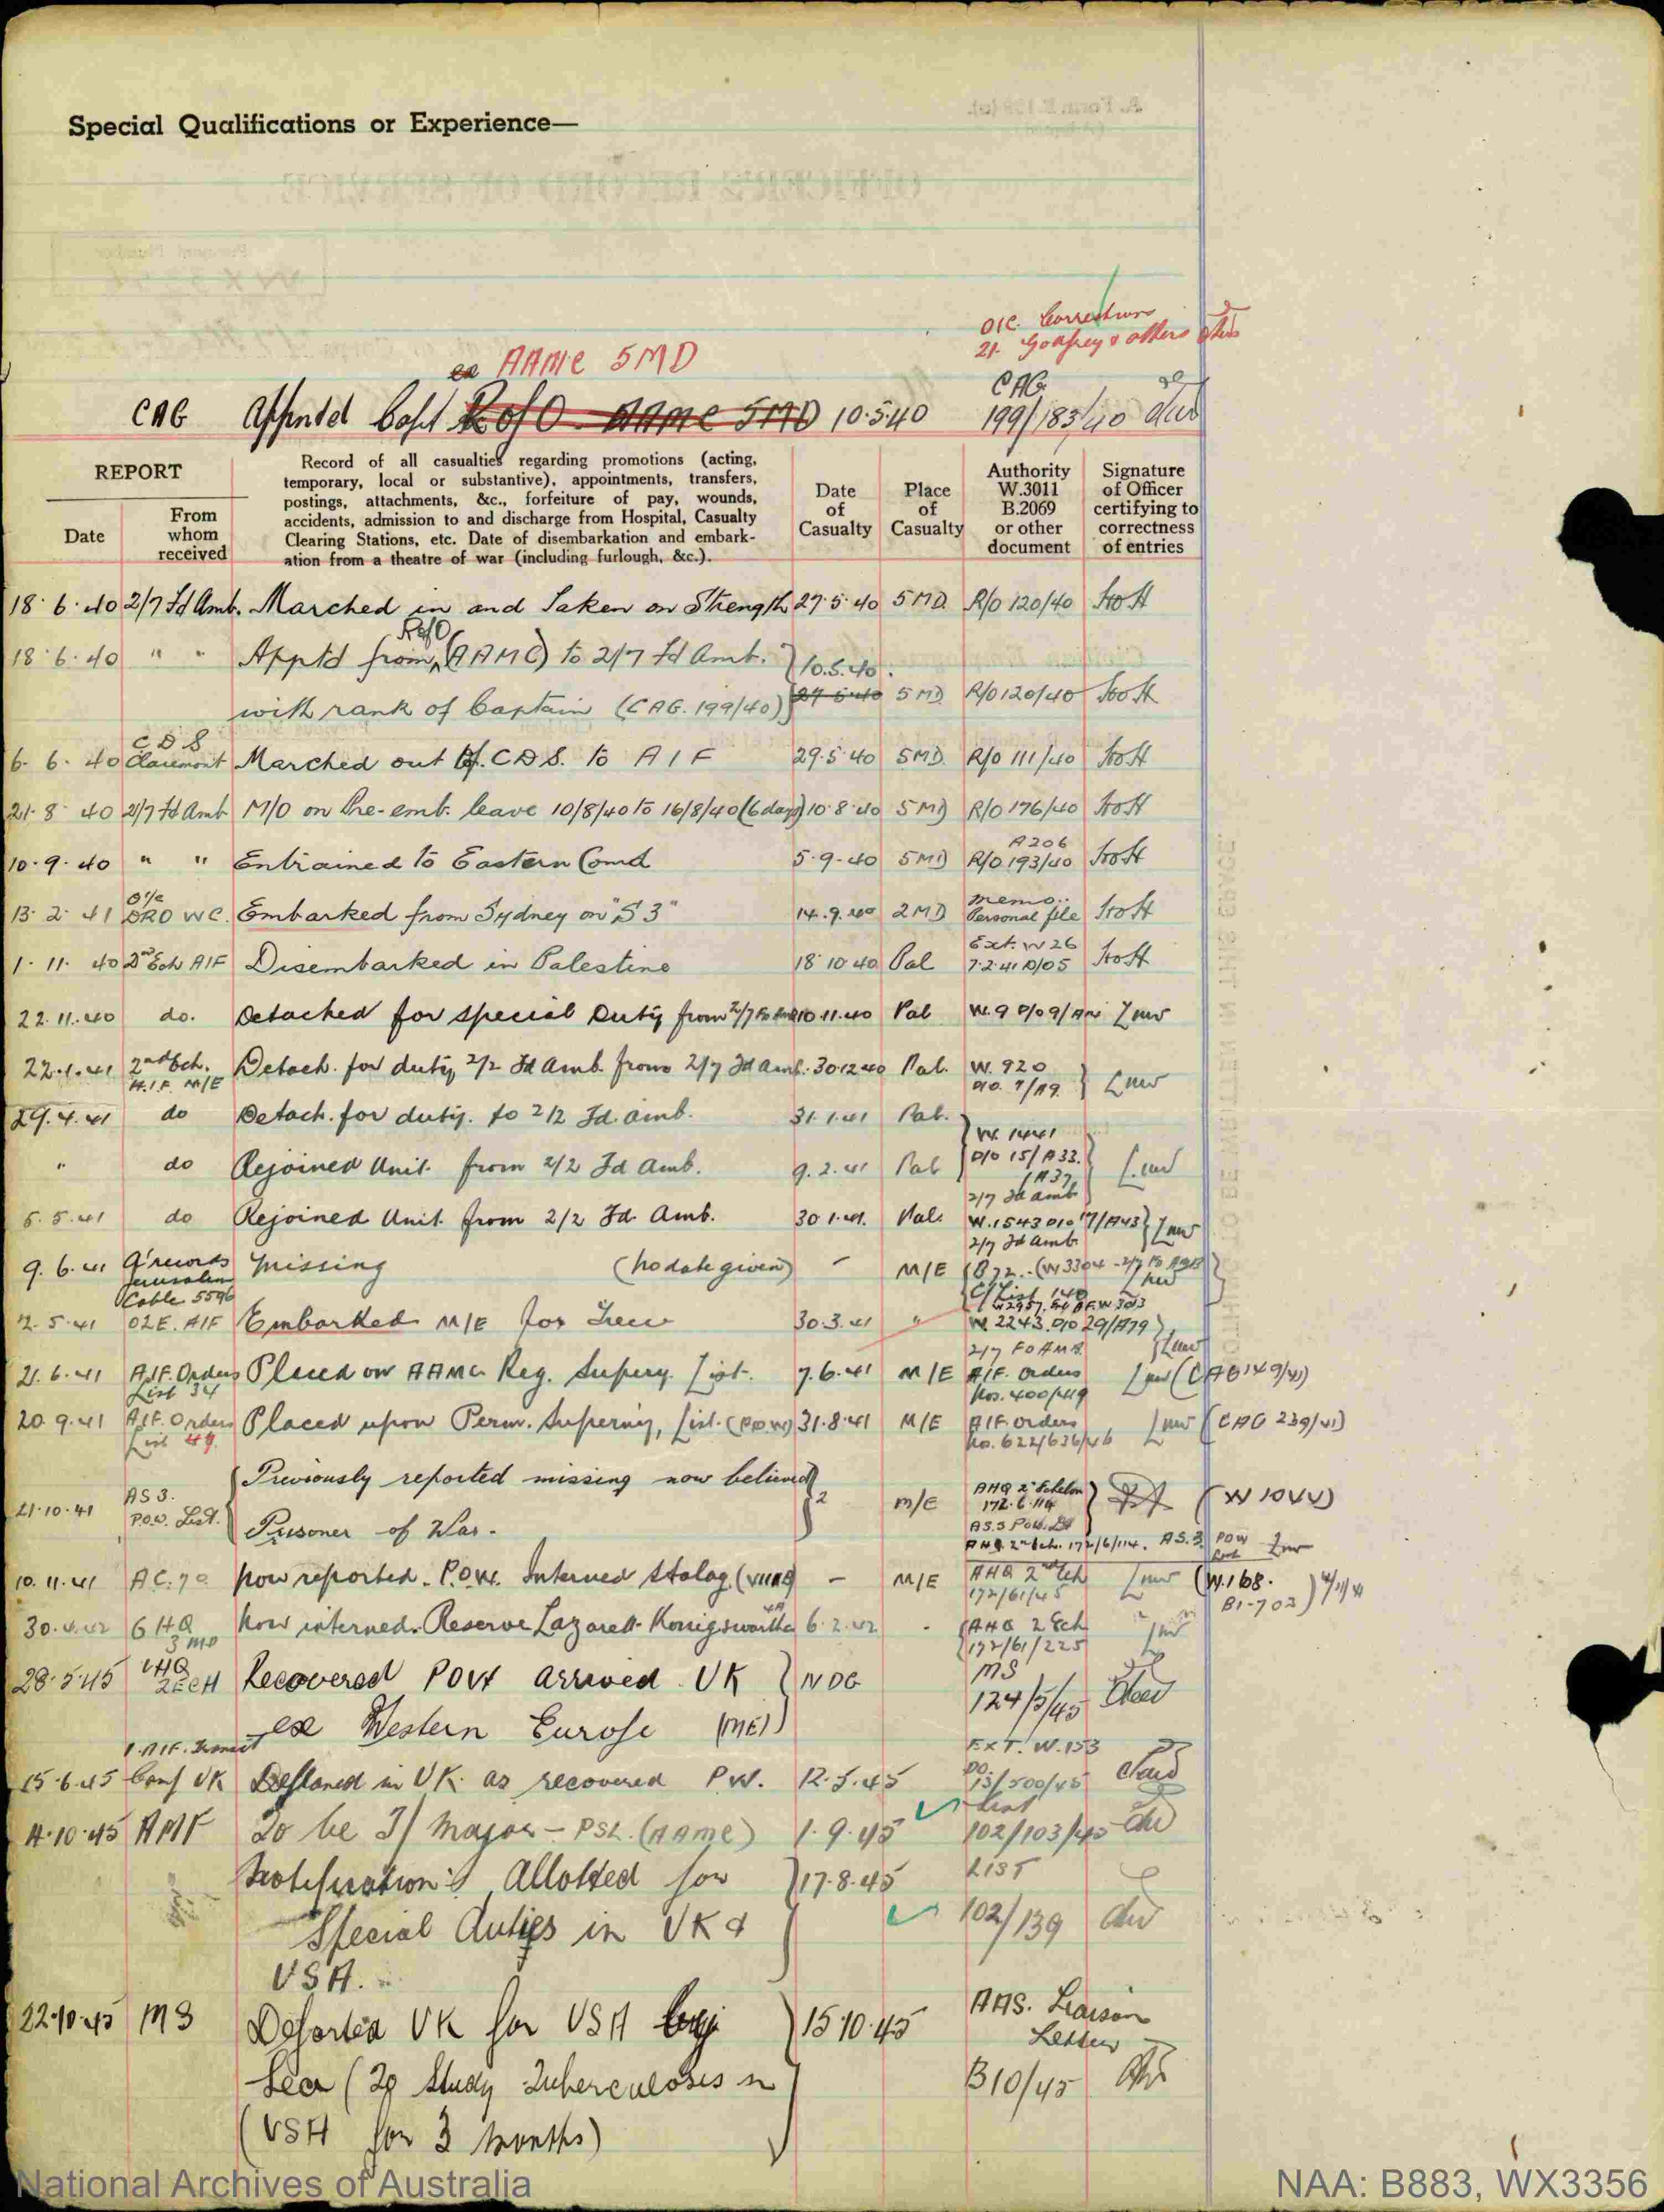 Special Qualifications or Experience—
O/C. Corrections
21. Godfrey & others
ex AAMC 5MD
CAG Appntd Capt R of O AAMC 5MD 10.5.40 CAG 199/183/40
REPORT
Date
From whom received
Record of all casualties regarding promotions (acting,
temporary, local or substantive), appointments, transfers,
postings, attachments, &c., forfeiture of pay, wounds,
accidents, admission to and discharge from Hospital, Casualty
Clearing Stations, etc. Date of disembarkation and embark-
ation from a theatre of war (including furlough, &c.).
Date of Casualty
Place of Casualty
Authority W.3011 B.2069 or other document
Signature of Officer certifying to correctness of entries
18.6.40 2/7 Fd Amb. Marched in and taken on Strength 27.5.40 5MD. R/O 120/40
R of O
18.6.40 " " Apptd from (AAMC) to 2/7 Fd Amb. 10.5.40.
with rank of Captain (CAG. 199/40) 27.5.40 5MD R/O 120/40
CDS
6.6.40 Claremont Marched out of C.D.S. to AIF 29.5.40 5MD. R/O 111/40
21.8.40 2/7 Fd Amb M/O on Pre-emb. leave 10/8/40 to 16/8/40 (6 days) 10.8.40 5MD R/O 176/40
A206
10.9.40 " " Entrained to Eastern Comd 5.9.40 5MD R/O 193/40
O i/c Memo
13.2.41 DRO WC. Embarked from Sydney on "S3" 14.9.40 2MD Personal file
Ext. W26
1.11.40 2nd Ech AIF Disembarked in Palestine 18.10.40 Pal 7.2.41 D/O5
22.11.40 do. Detached for special duty from 2/7 Fd Amb 10.11.40 Pal W.9 D/O 9/
22.1.41 2nd Ech. Detach. for duty 2/2 Fd Amb. from 2/7 Fd Amb. 30.12.40 Pal. W. 920
A.I.F. M/E D/O. 7/A9.
29.4.41 do Detach. for duty. to 2/2 Fd. Amb. 31.1.41 Pal.
W. 1441
" do Rejoined Unit from 2/2 Fd Amb. 9.2.41 Pal D/O 15/A33.
/A37
2/7 Fd Amb
5.5.41 do Rejoined Unit from 2/2 Fd. Amb. 30.1.41. Pal. W.1543 D/O 17/A43
2/7 Fd Amb
9.6.41 Missing (no date given) – M/E
Jerusalem
Cable 5596 C/List 140
2.5.41 02E. AIF Embarked M/E for 30.3.41 " W. 2243. D/O 29/A79
2/7 FD AMB.
21.6.41 AIF. Orders Placed on AAMC Reg. Supery. List. 7.6.41 M/E AIF. Orders (CAG 149/41)
List 34 No. 400/419
20.9.41 AIF. Orders Placed upon Perm. Supernny, List. (POW) 31.8.41 M/E AIF Orders (CAG 239/41)
List 49 No. 622/636/46
Previously reported missing now believed
21.10.41 AS 3. P.O.W. List. M/E AHQ 2nd Echelon 172/6/114
Prisoner of War. AS.3 POW. List
AHQ. 2nd Ech. 172/6/114. AS.3. POW
10.11.41 AC. 70 Now reported. P.O.W. Interned Stalag (VIIIB) – M/E AHQ 2nd Ech (W.168.
172/61/45 B1-702)
30.4.42 GHQ Now interned. Reserve Lazarett. Konigswartha 6.2.42 AHQ 2 Ech
172/61/225
28.5.45 LHQ 2ECH Recovered POW arrived UK NDG MS
ex Western Europe (ME) 124/5/45
EXT. W.153
15.6.45 UK in UK. as recovered P.W. 12.5.45 DO. 13/500/45
List
4.10.45 AMF To be T/ Major – PSL. (AAMC) 1.9.45 102/103/45
Notification: Allotted for 17.8.45 LIST
Special Duties in UK & 102/139
USA.
22.10.45 MS Departed UK for USA by 15.10.45 AAS. Liaison
Letter
Sea (To Study Tuberculosis in B10/45
(USA for 3 months)
National Archives of Australia
NAA: B883, WX3356